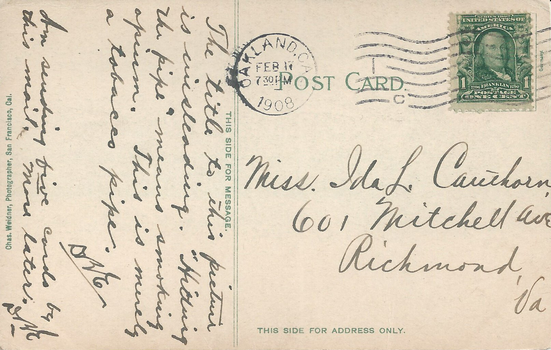 The title to this picture
is misleading. "Hitting
the pipe" means smoking
opium. This is merely
a tobacco pipe.
Am sending five cards by
this mail. More later.
Chas. Weidner, Photographer, San Francisco, Cal.
THIS SIDE FOR MESSAGE.
OAKLAND, CAL.
FEB 1
7 30 PM
1908
C
POST CARD.
UNITED STATES OF
AMERICA
1 1
FRANKLIN
POSTAGE
ONE CENT
Miss. Ida L. Cauthorn,
601 Mitchell Ave
Richmond,
Va
THIS SIDE FOR ADDRESS ONLY.